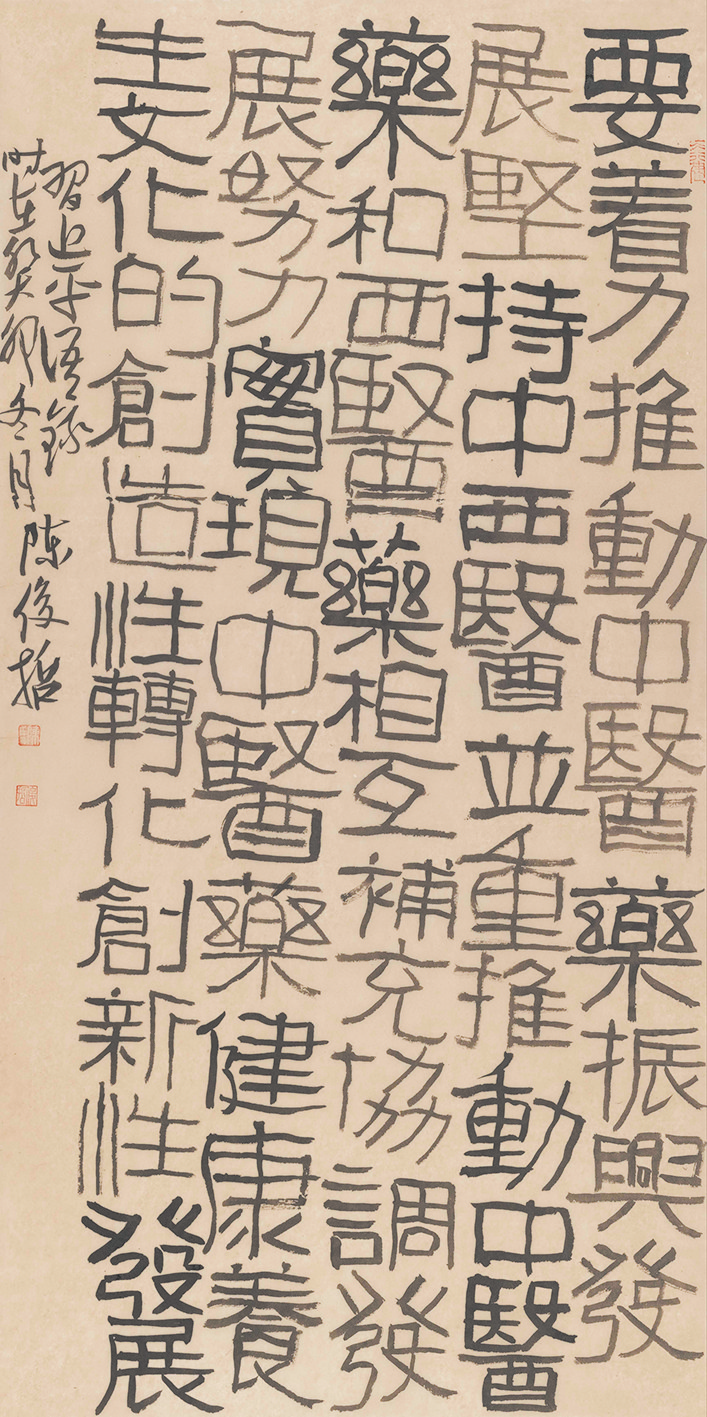 要着力推動中醫藥振興發
展堅持中西醫並重推動中醫
藥和西醫藥相互補充協調發
展努力實現中醫藥健康養
生文化的創造性轉化創新性發展
習近平語錄
时在癸卯冬月陈俊哲